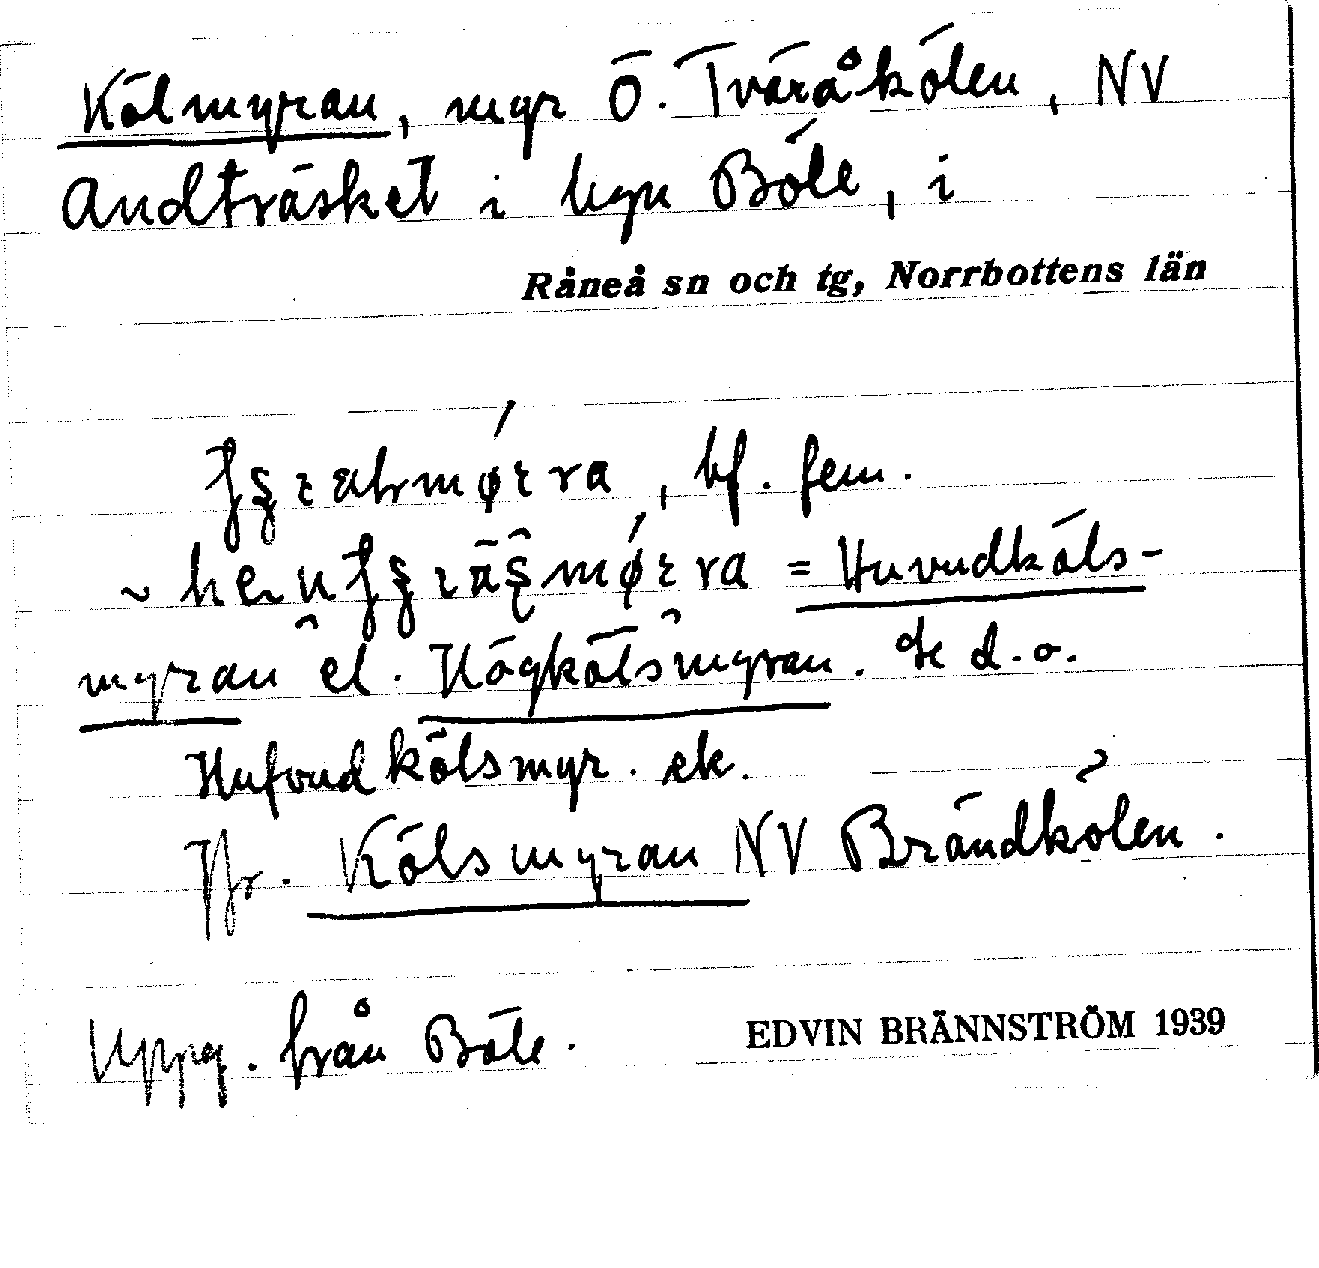 Kölmyran, myr Ö. Tväråkölen, NV
Andträsket i byn Böle, i
Råneå sn och tg, Norrbottens län
bf. fem.
= Huvudköls-
myran el. Högkölsmyran. Se d.o.
Hufvudkölsmyr. ek.
Jfr. Kölsmyran NV Brändkölen.
Uppg. från Böle.
EDVIN BRÄNNSTRÖM 1939